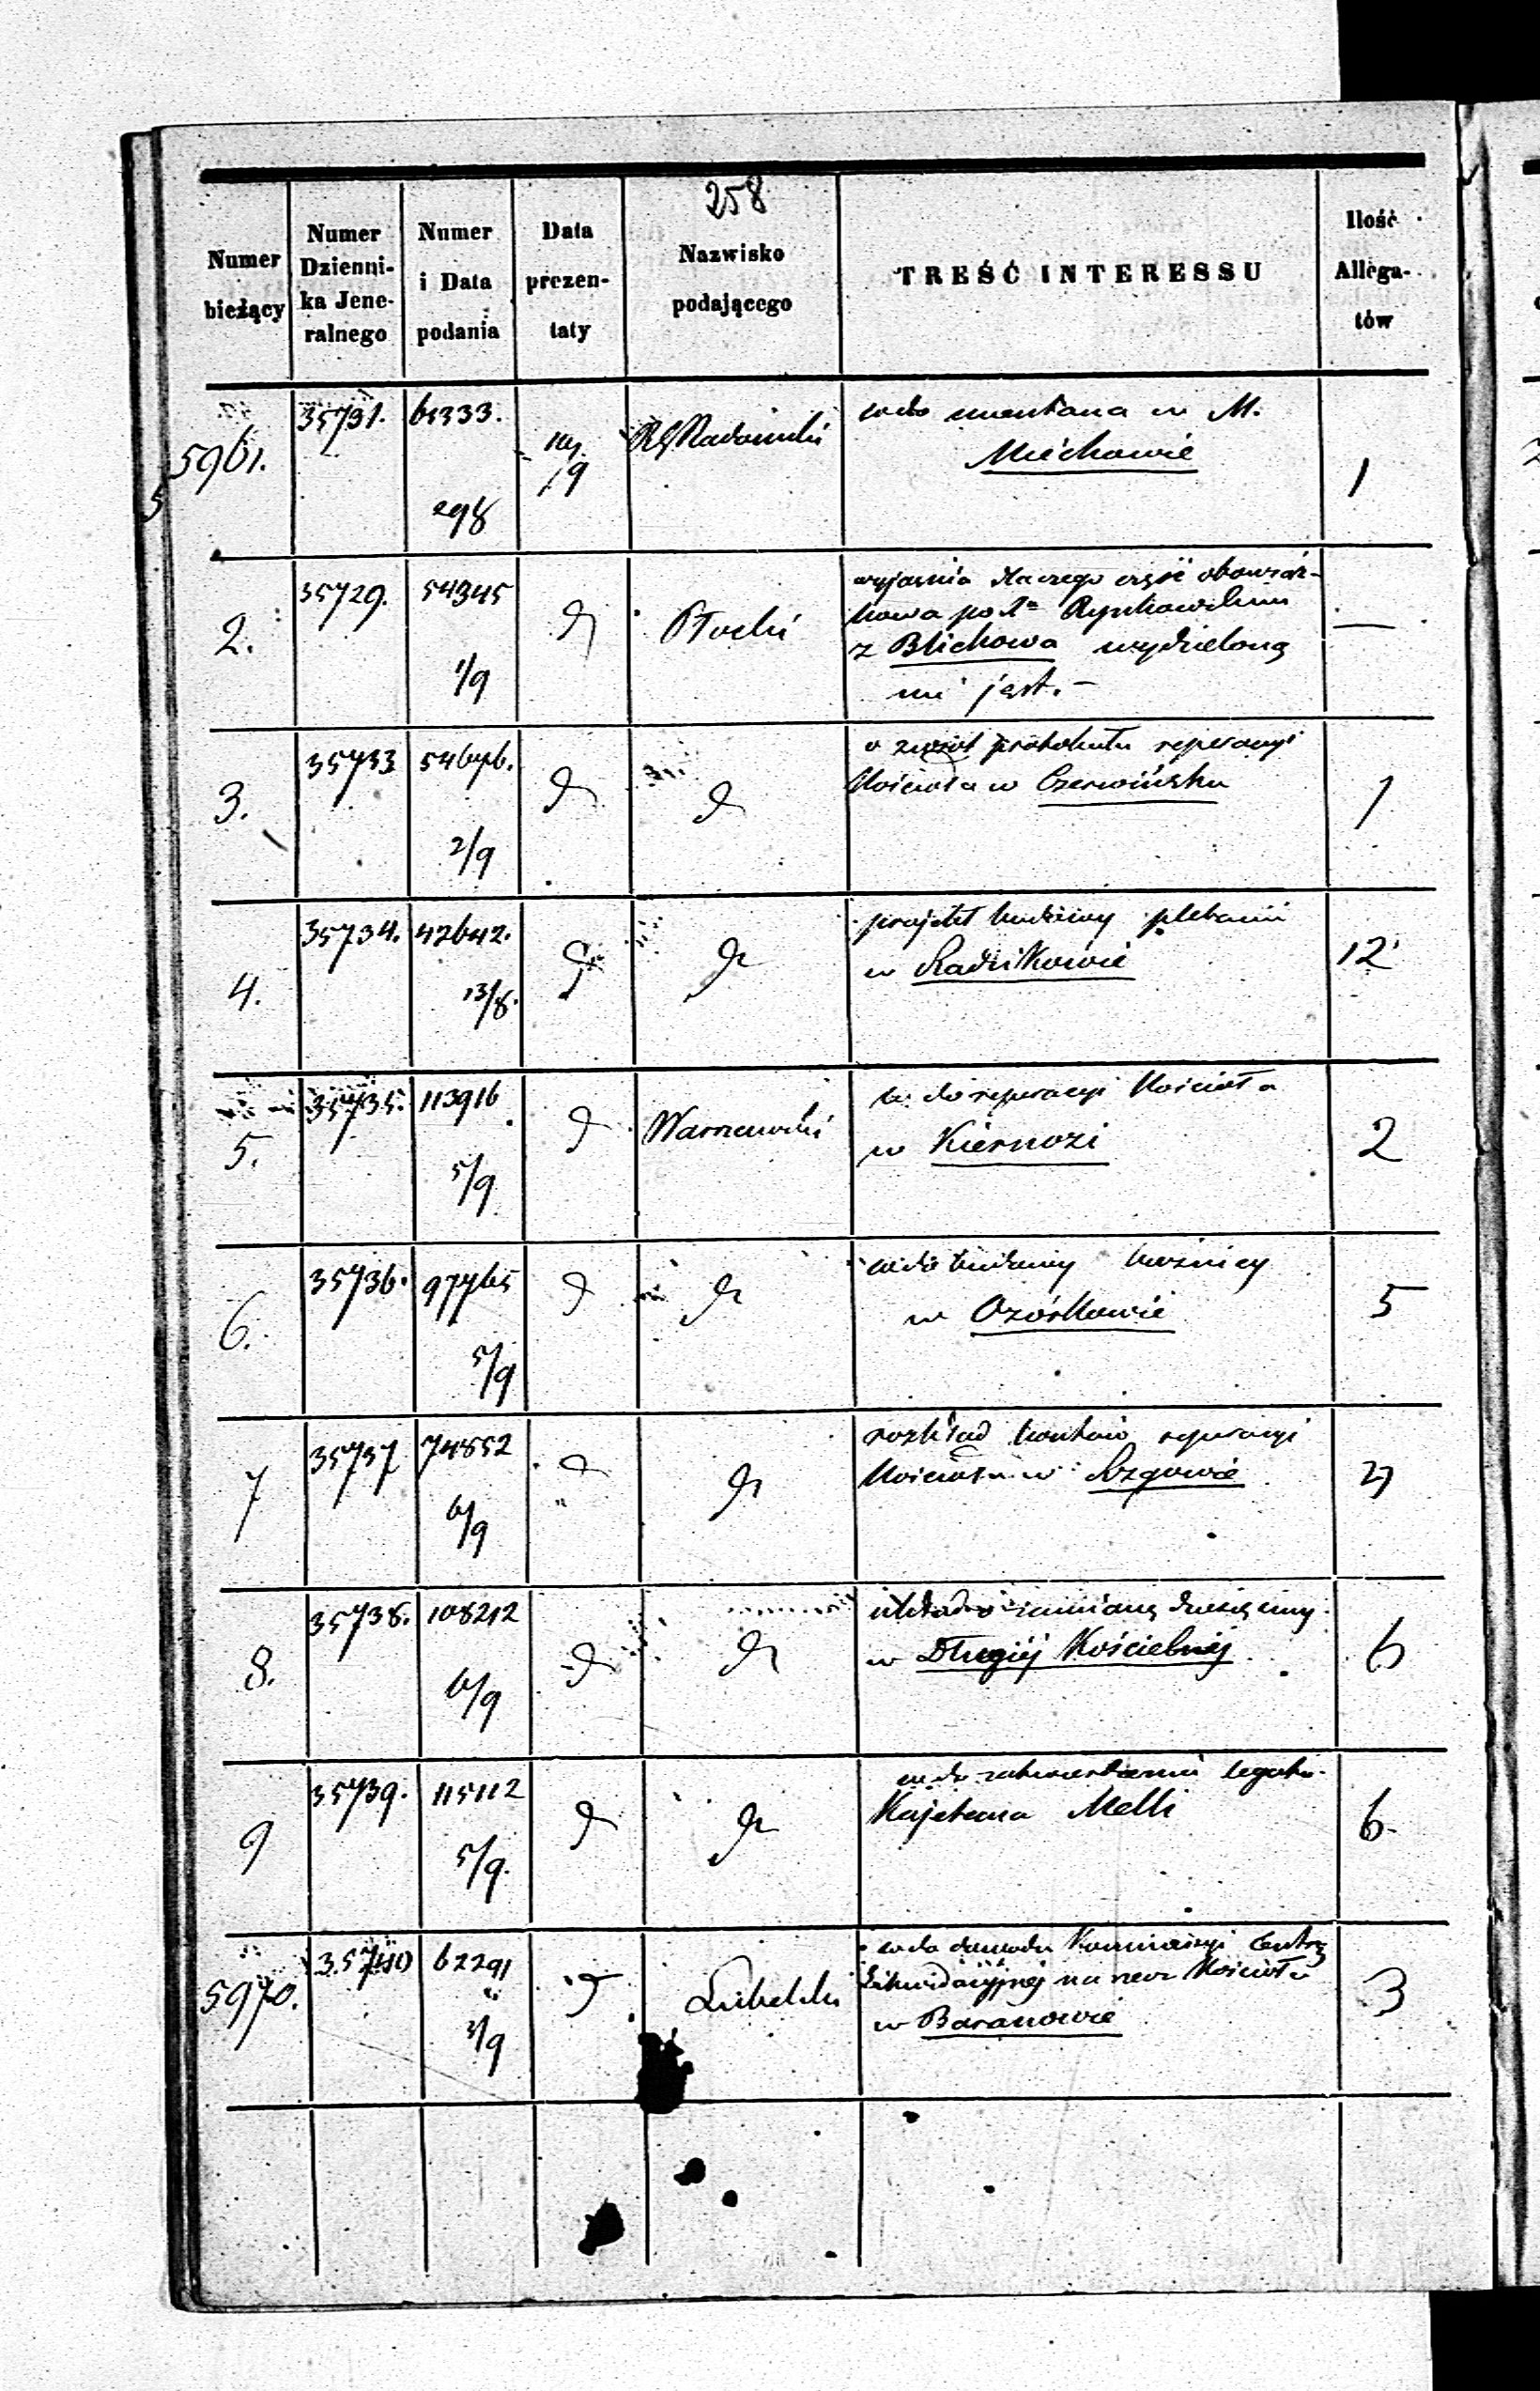 258
Numer bieżący
Numer Dzienni-ka Jene-ralnego
Numer i Data podania
Data prezen-taty
Nazwisko podającego
TREŚĆ INTERESSU
Ilość Allega-tów
5961. 35731. 61333. 298 /9 RG Radomski
w M.
Miechowie
1
2. 35729. 54345 1/9 d Płocki
wyjaśnia dlaczego część obowiąz-
kowa po
z Blichowa wydzieloną
nie jest. —
—
3. 35733 54676. 2/9 d d
o zwrot protokułu reperacyi
Kościoła w Czerwińsku
1
4. 35734. 42642. 13/8. d d
projekt budowy plebanii
w Radzikowie
12
5. 35735. 113916 5/9 d Warszawski
w do reperacyi Kościoła
w Kiernozi
2
6. 35736. 97765 5/9 d d
wdo budowy bożnicy
w Ozórkowie
5
7 35737 74852 6/9 d d
rozkład kosztów reperacyi
Kościoła w Rzgowie
8. 35738. 108212 6/9 d d
układ o zamianę dziesięciny
w Długiéj Kościelnéj
6
9 35739. 115112 5/9. d d
wdo zatwierdzenia legatu
Kajetana Melli
6.
5970. 35740 62291 /9 d Lubelski
wdo dowodu Kommissyi Centr
Likwidacyjnéj na rzecz Kościoła
w Baranowie
3